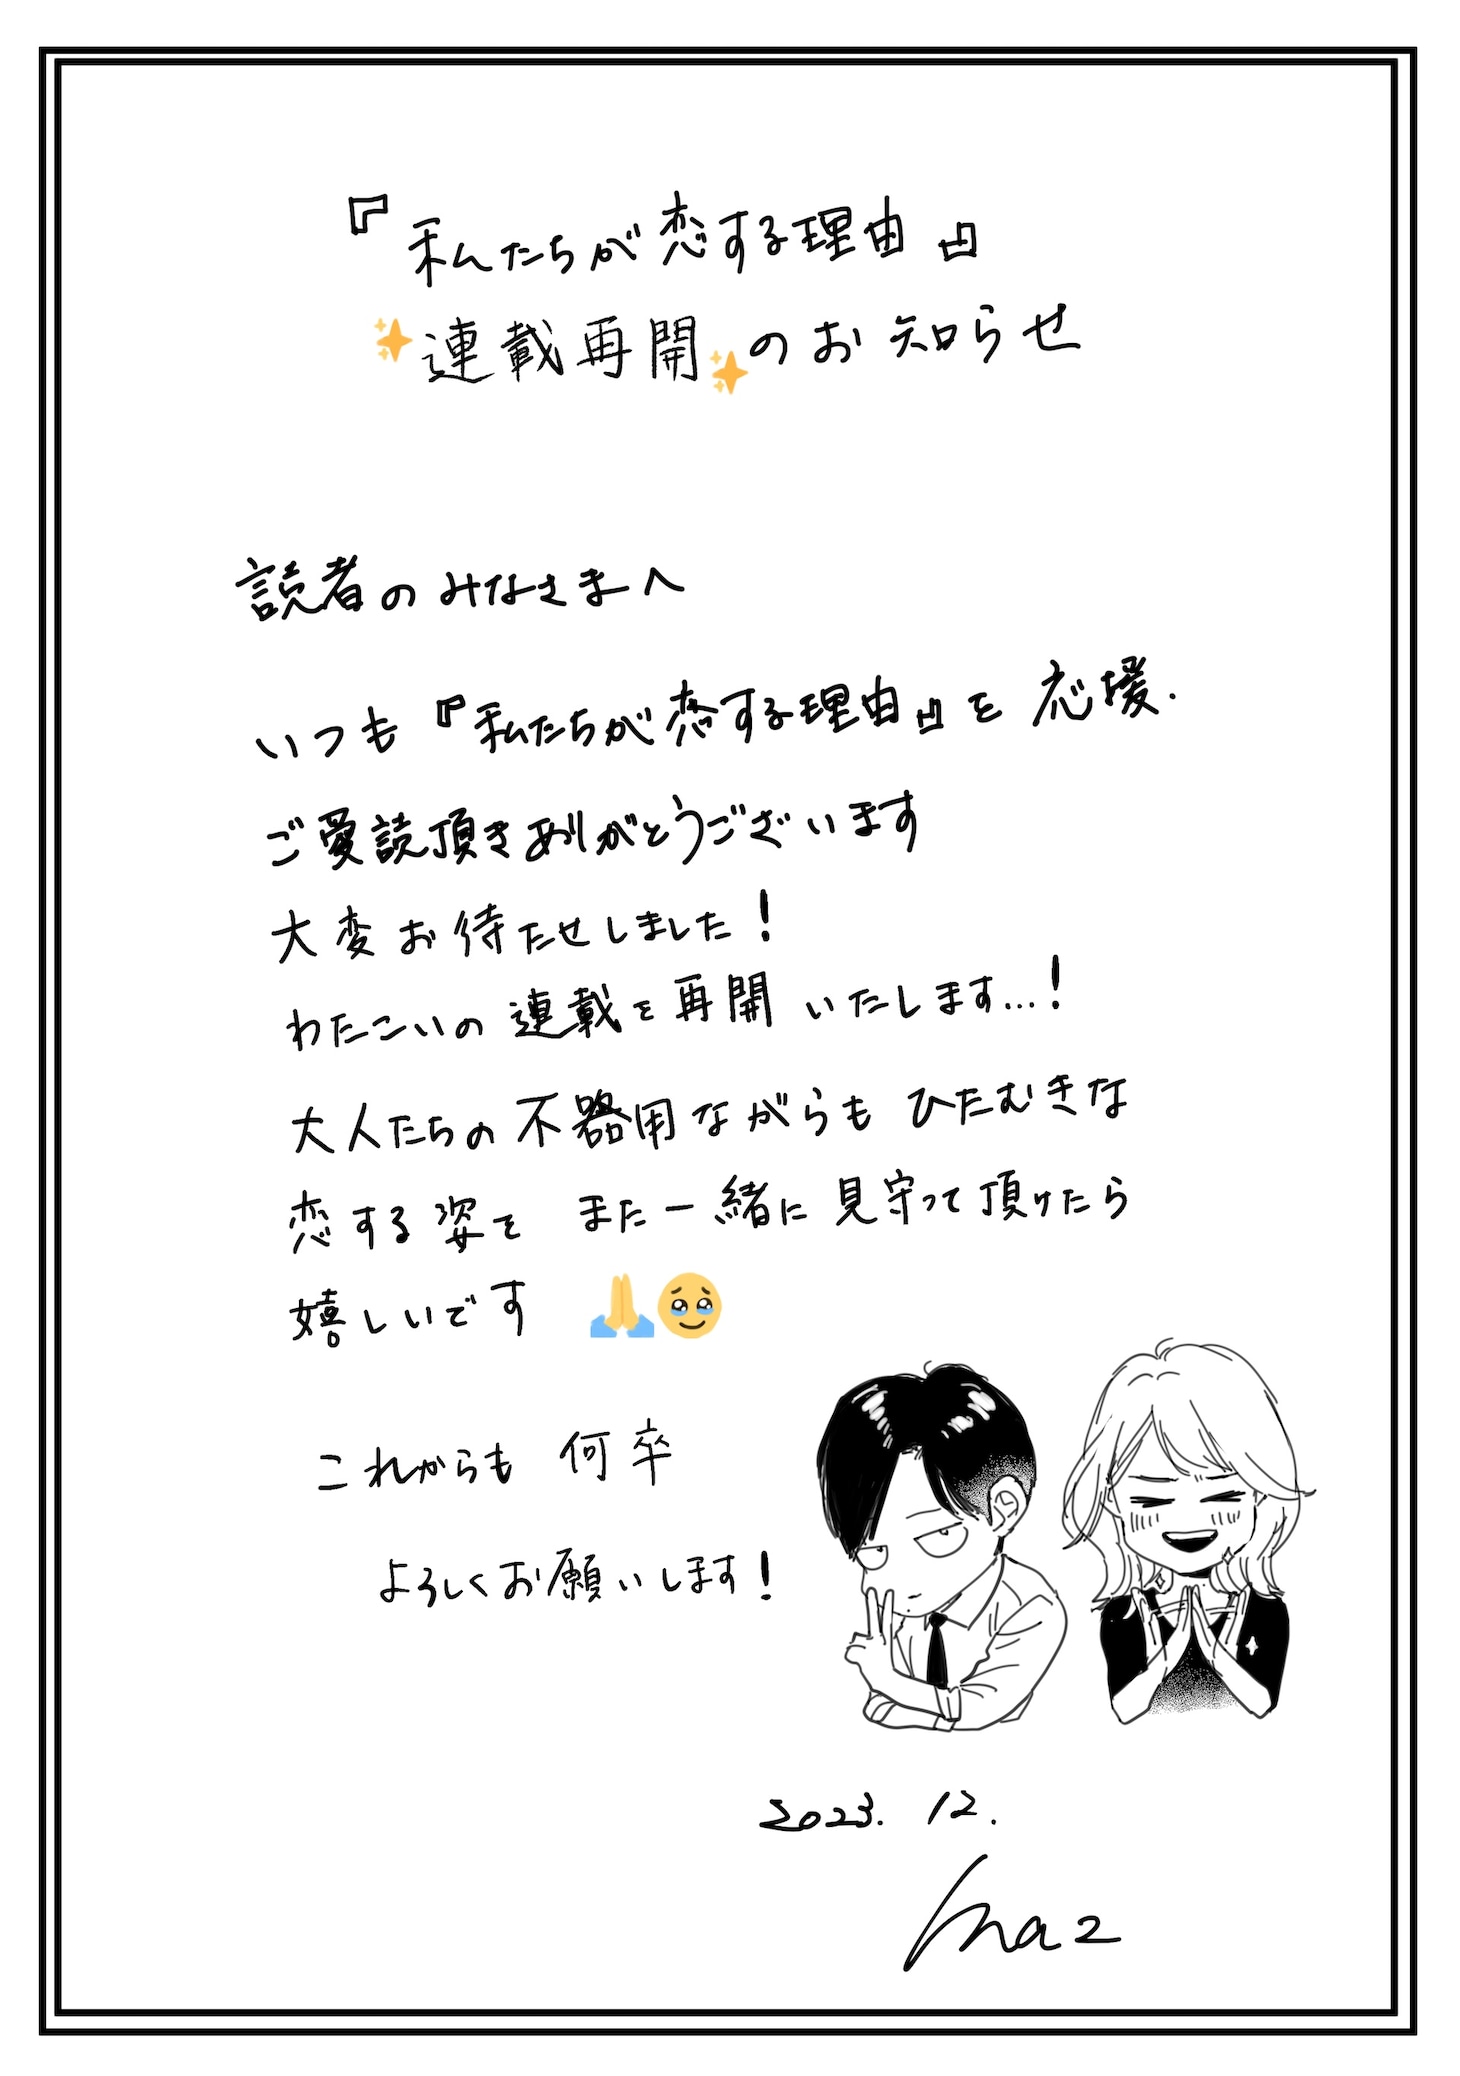 『私たちが恋する理由』
✨連載再開✨のお知らせ
読者のみなさまへ
いつも『私たちが恋する理由』を応援.
ご愛読頂きありがとうございます
大変お待たせしました!
わたこいの連載を再開いたします...!
大人たちの不器用ながらもひたむきな
恋する姿を また一緒に見守って頂けたら
嬉しいです 🙏🥹
これからも 何卒
よろしくお願いします!
2023. 12.
ma2